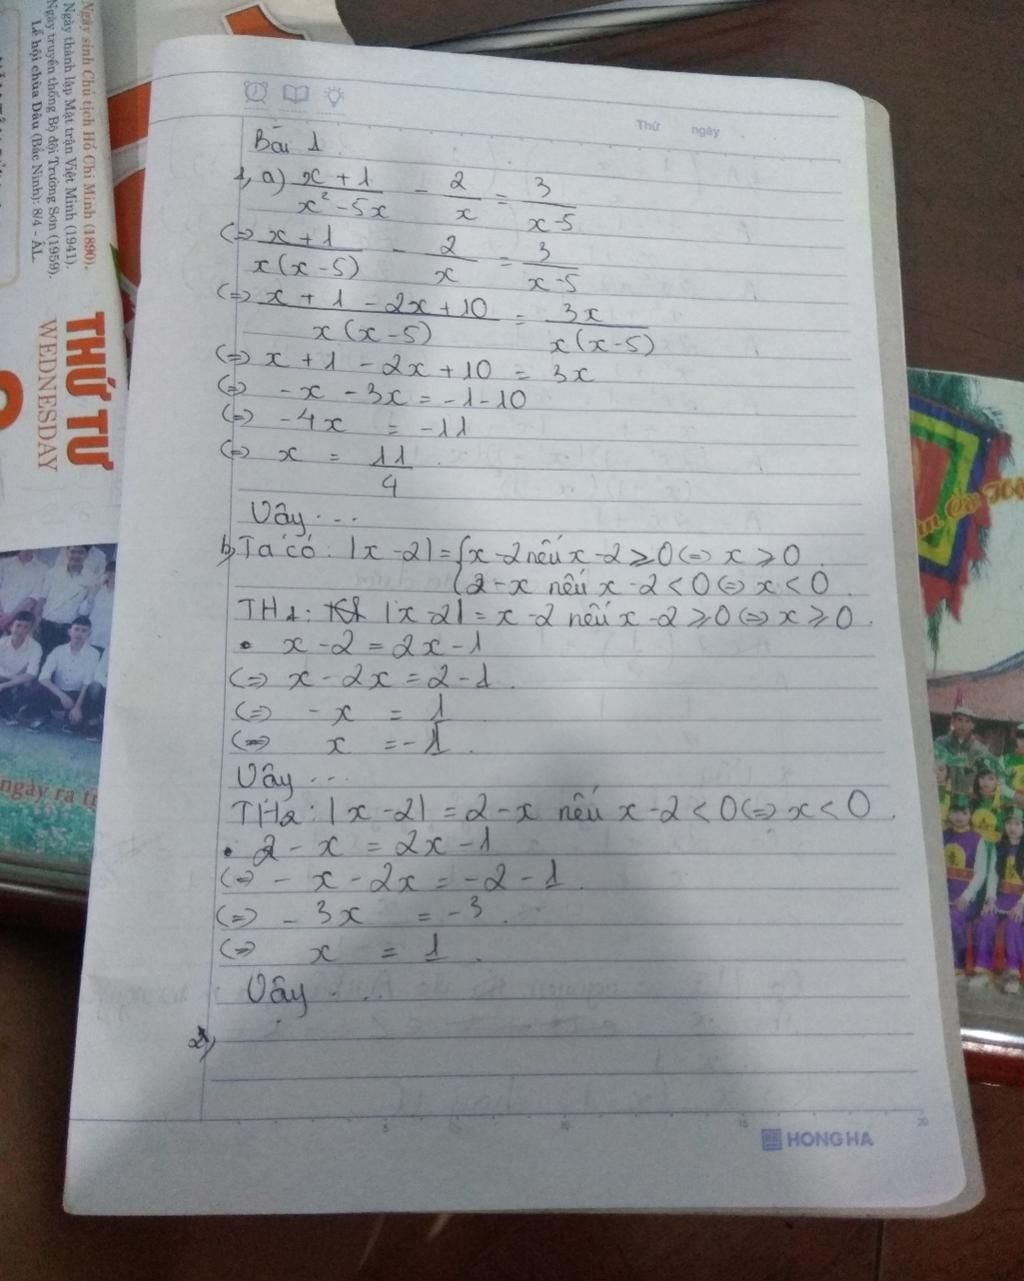 Ngày sinh Chủ tịch Hồ Chí Minh (1890).
Ngày thành lập Mặt trận Việt Minh (1941).
Ngày truyền thống Bộ đội Trường Sơn (1959).
Lễ hội chùa Dâu (Bắc Ninh): 8/4 - ÂL.
THỨ TƯ
WEDNESDAY
ngày ra
Thứ ngày
Bài 1
1, a) (x + 1)/(x² - 5x) - 2/x = 3/(x - 5)
(=> (x + 1)/(x(x - 5)) - 2/x = 3/(x - 5)
(=> (x + 1 - 2x + 10)/(x(x - 5)) = 3x/(x(x - 5))
(=> x + 1 - 2x + 10 = 3x
(=> -x - 3x = -1 - 10
(=> -4x = -11
(=> x = 11/4.
Vậy ...
b, Ta có: |x - 2| = { x - 2 nếu x - 2 ≥ 0 (=> x ≥ 0.
{ 2 - x nếu x - 2 < 0 (=> x < 0.
TH1: |x - 2| = x - 2 nếu x - 2 ≥ 0 (=> x ≥ 0.
• x - 2 = 2x - 1
(=> x - 2x = 2 - 1.
(=> -x = 1
(=> x = -1.
Vậy ...
TH2: |x - 2| = 2 - x nếu x - 2 < 0 (=> x < 0.
• 2 - x = 2x - 1
(=> -x - 2x = -2 - 1.
(=> -3x = -3.
(=> x = 1.
Vậy ...
2,
5 10 15 20
HONG HA